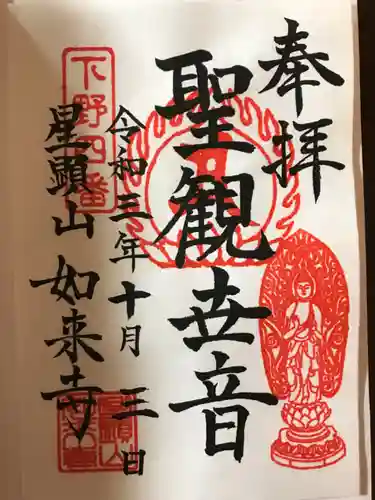 奉拝
聖観世音
令和三年十月三日
下野四番
星顕山 如来寺